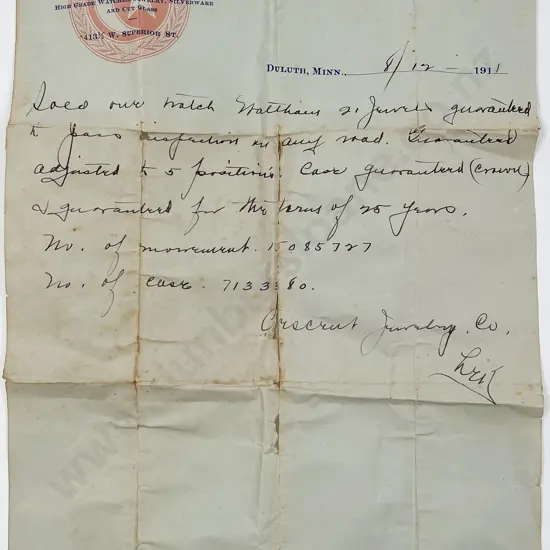 High Grade Watches, Jewelry, Silverware
and Cut Glass
413½ W. Superior St.
Duluth, Minn., 8/12 - 1911
Sold one Watch Waltham 21 Jewels guaranteed
to pass inspection on any road. Guaranteed
adjusted to 5 positions. Case guaranteed (Crown)
& guaranteed for the term of 25 years.
No. of movement. 15085727
No. of case. 7133380.
Crescent Jewelry. Co.